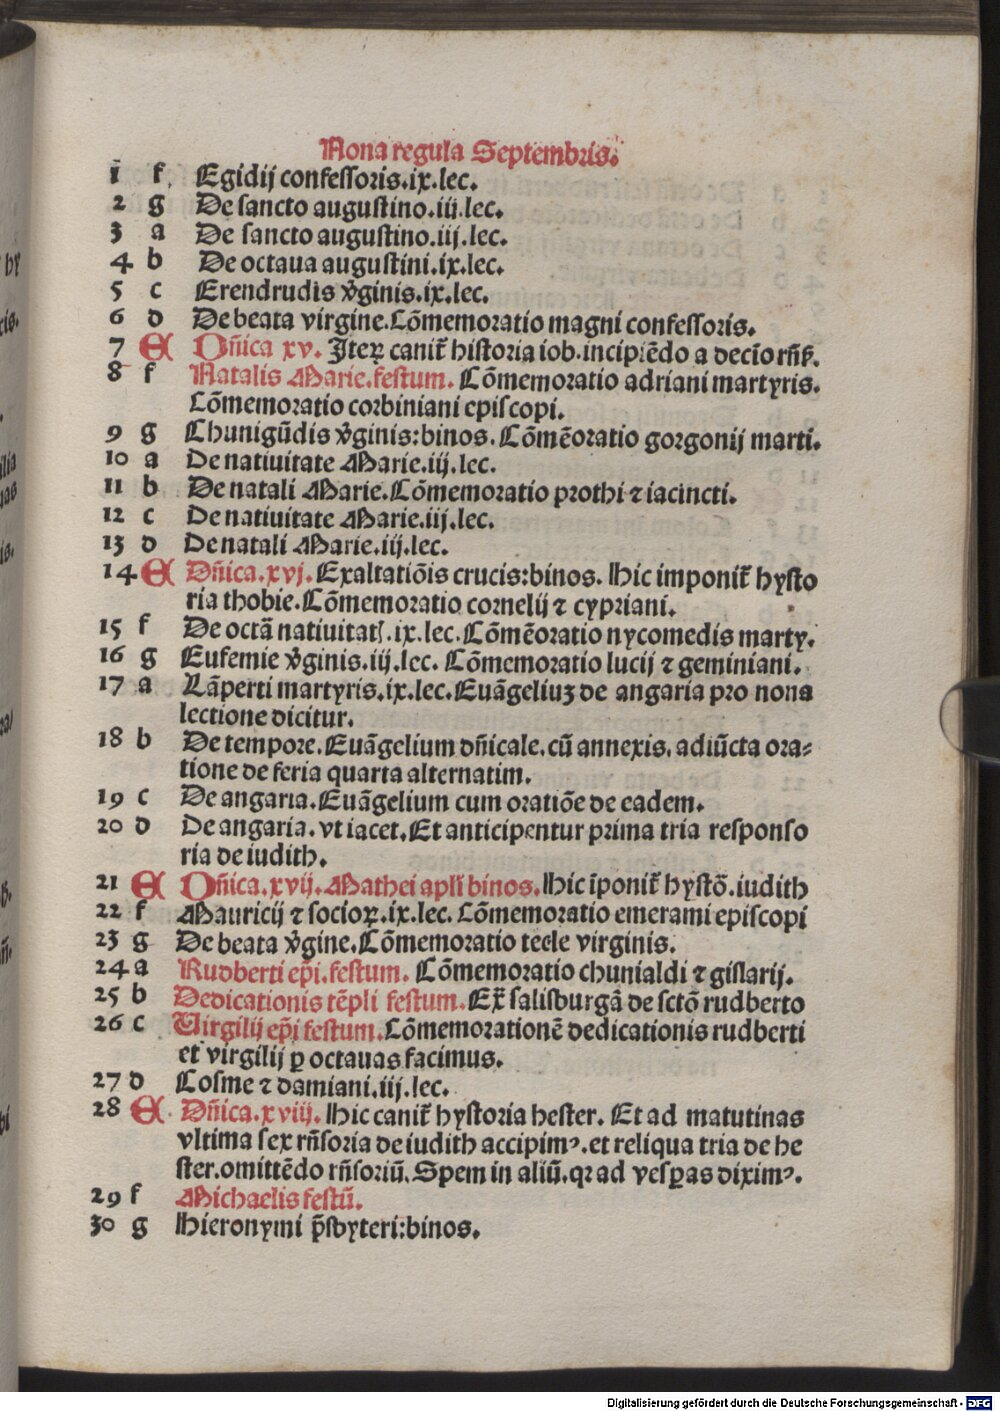 Nona regula Septembris.
1 f Egidij confessoris.ix.lec.
2 g De sancto augustino.iij.lec.
3 a De sancto augustino.iij.lec.
4 b De octaua augustini.ix.lec.
5 c Erendrudis v̾ginis.ix.lec.
6 d De beata virgine.Cōmemoratio magni confessoris.
7 E Dñica xv. Iteꝝ canit᷑ historia iob.incipiēdo a decīo rñß.
8 f Natalis Marie.festum. Cōmemoratio adriani martyris.
Cōmemoratio corbiniani episcopi.
9 g Chunigūdis v̾ginis:binos. Cōmēoratio gorgonij marti.
10 a De natiuitate Marie.iij.lec.
11 b De natali Marie.Cōmemoratio prothi ⁊ iacincti.
12 c De natiuitate Marie.iij.lec.
13 d De natali Marie.iij.lec.
14 E Dñica.xvj.Exaltatiōis crucis:binos. Hic imponit᷑ hysto
ria thobie.Cōmemoratio cornelij ⁊ cypriani.
15 f De octā natiuitatꝭ.ix.lec.Cōmēoratio nycomedis marty.
16 g Eufemie v̾ginis.iij.lec. Cōmemoratio lucij ⁊ geminiani.
17 a Lāperti martyris.ix.lec.Euāgeliuꝫ de angaria pro nona
lectione dicitur.
18 b De tempore.Euāgelium dñicale.cū annexis.adiūcta ora⸗
tione de feria quarta alternatim.
19 c De angaria.Euāgelium cum oratiōe de eadem.
20 d De angaria.vt iacet.Et anticipentur prima tria responso
ria de iudith.
21 E Dñica.xvij.Mathei apłi binos.Hic īponit᷑ hystō.iudith
22 f Mauricij ⁊ socioꝝ.ix.lec. Cōmemoratio emerami episcopi
23 g De beata v̾gine.Cōmemoratio tecle virginis.
24 a Rudberti ep̄i.festum. Cōmemoratio chunialdi ⁊ gislarij.
25 b Dedicationis tēpli festum.Ex̄ salisburgā de sctō rudberto
26 c Virgilij ep̄i festum.Cōmemorationē dedicationis rudberti
et virgilij ꝑ octauas facimus.
27 d Cosme ⁊ damiani.iij.lec.
28 E Dñica.xviij.Hic canit᷑ hystoria hester. Et ad matutinas
vltima sex rñsoria de iudith accipimꝰ.et reliqua tria de he
ster.omittēdo rñsoriū.Spem in aliū.qꝛ ad vesꝑas diximꝰ.
29 f Michaelis festū.
30 g Hieronymi p̄sbyteri:binos.
Digitalisierung gefördert durch die Deutsche Forschungsgemeinschaft - DFG